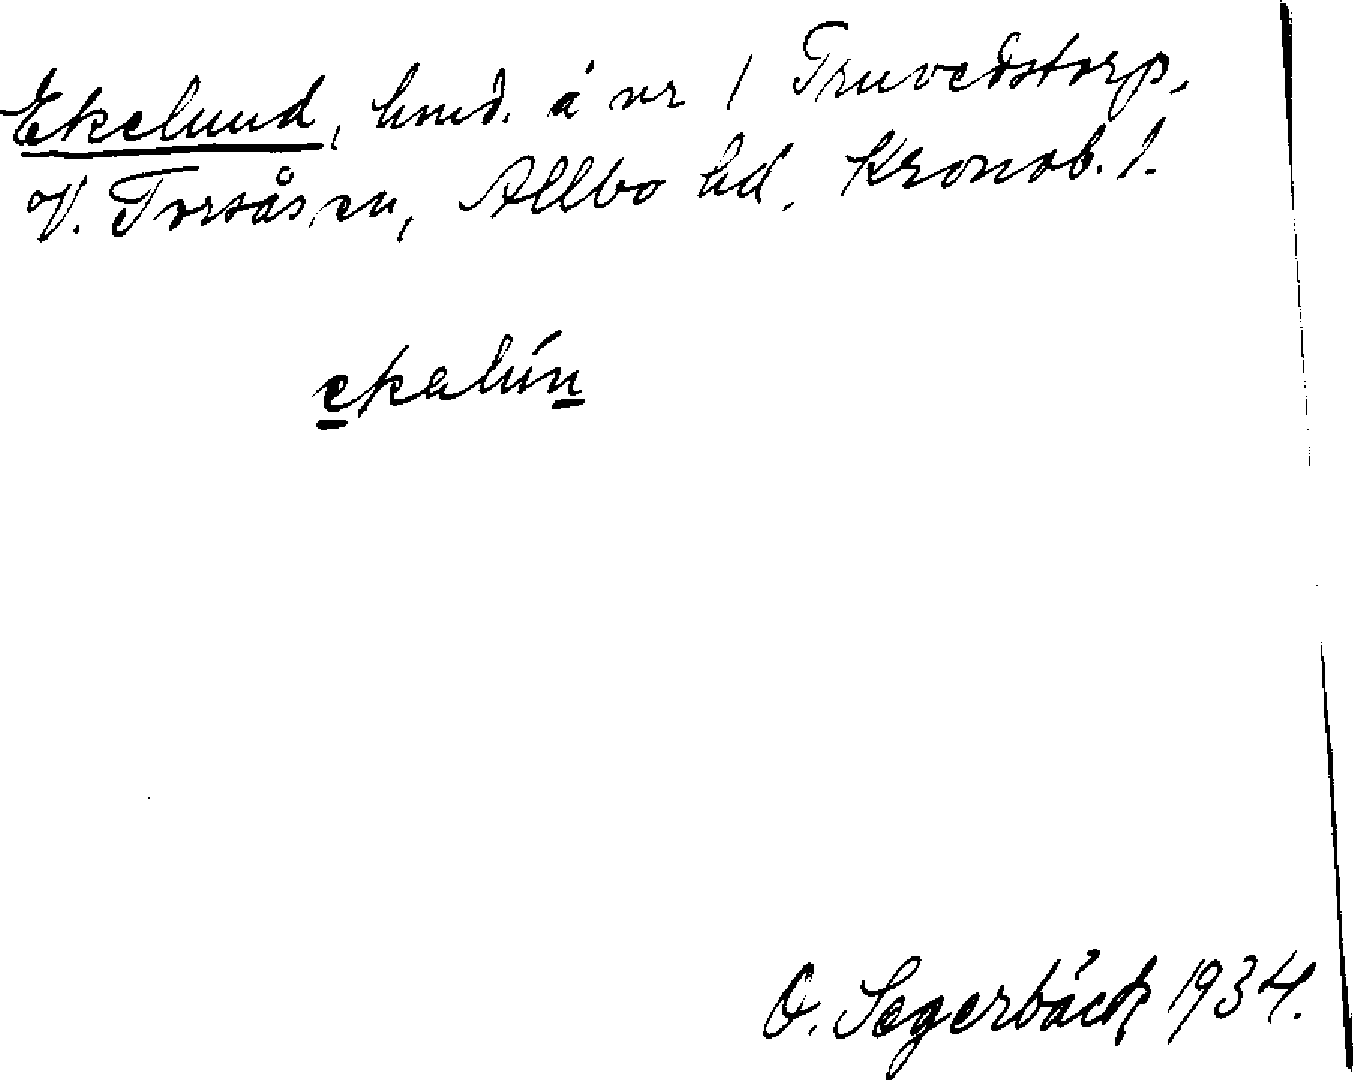 Ekelund, lmd. å nr 1 Truvedstorp,
V. Torsås sn, Allbo hd, Kronob. l.
ekalún
O. Segerbäck 1934.